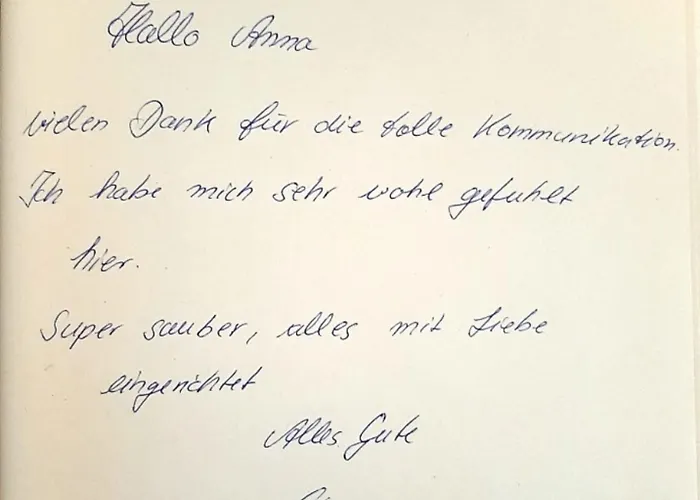 Hallo Anna
vielen Dank für die tolle Kommunikation.
Ich habe mich sehr wohl gefühlt
hier.
Super sauber, alles mit Liebe
eingerichtet
Alles Gute